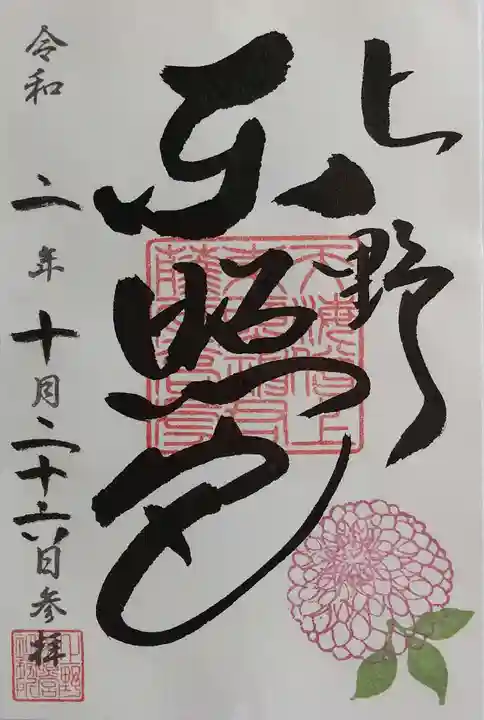 上野
東照宮
令和二年十月二十六日参拝